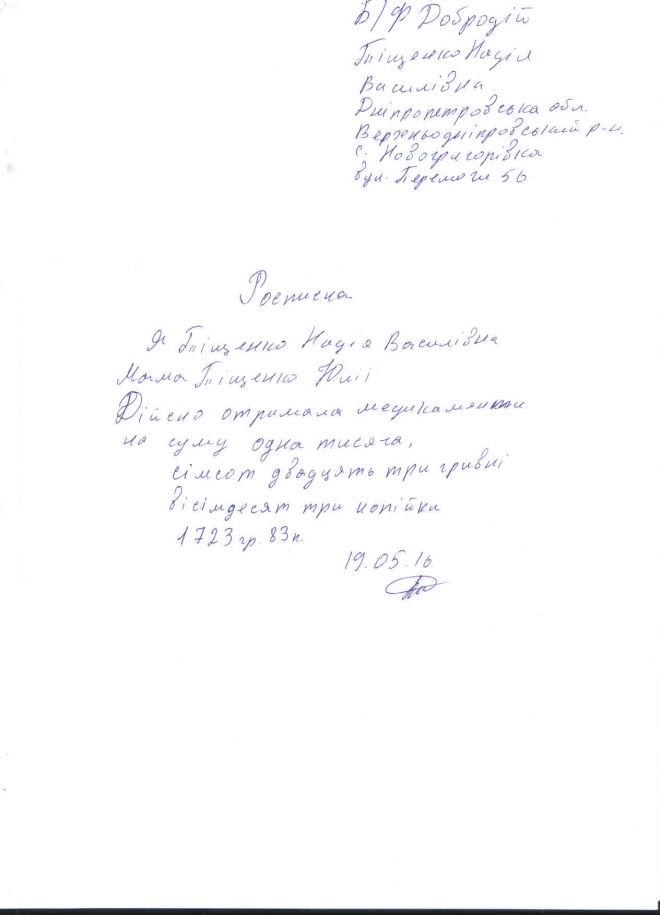 Б/Ф Добродій
Гіщенко Надія
Василівна
Дніпропетровська обл.
Верхньодніпровський р-н.
с. Новогригорівка
вул. Перемоги 56
Росписка
Я Гіщенко Надія Василівна
Мама Гіщенко Юлії
Дійсно отримала медикаменти
на суму одна тисяча,
сімсот двадцять три гривні
вісімдесят три копійки
1723 гр. 83 к.
19.05.16